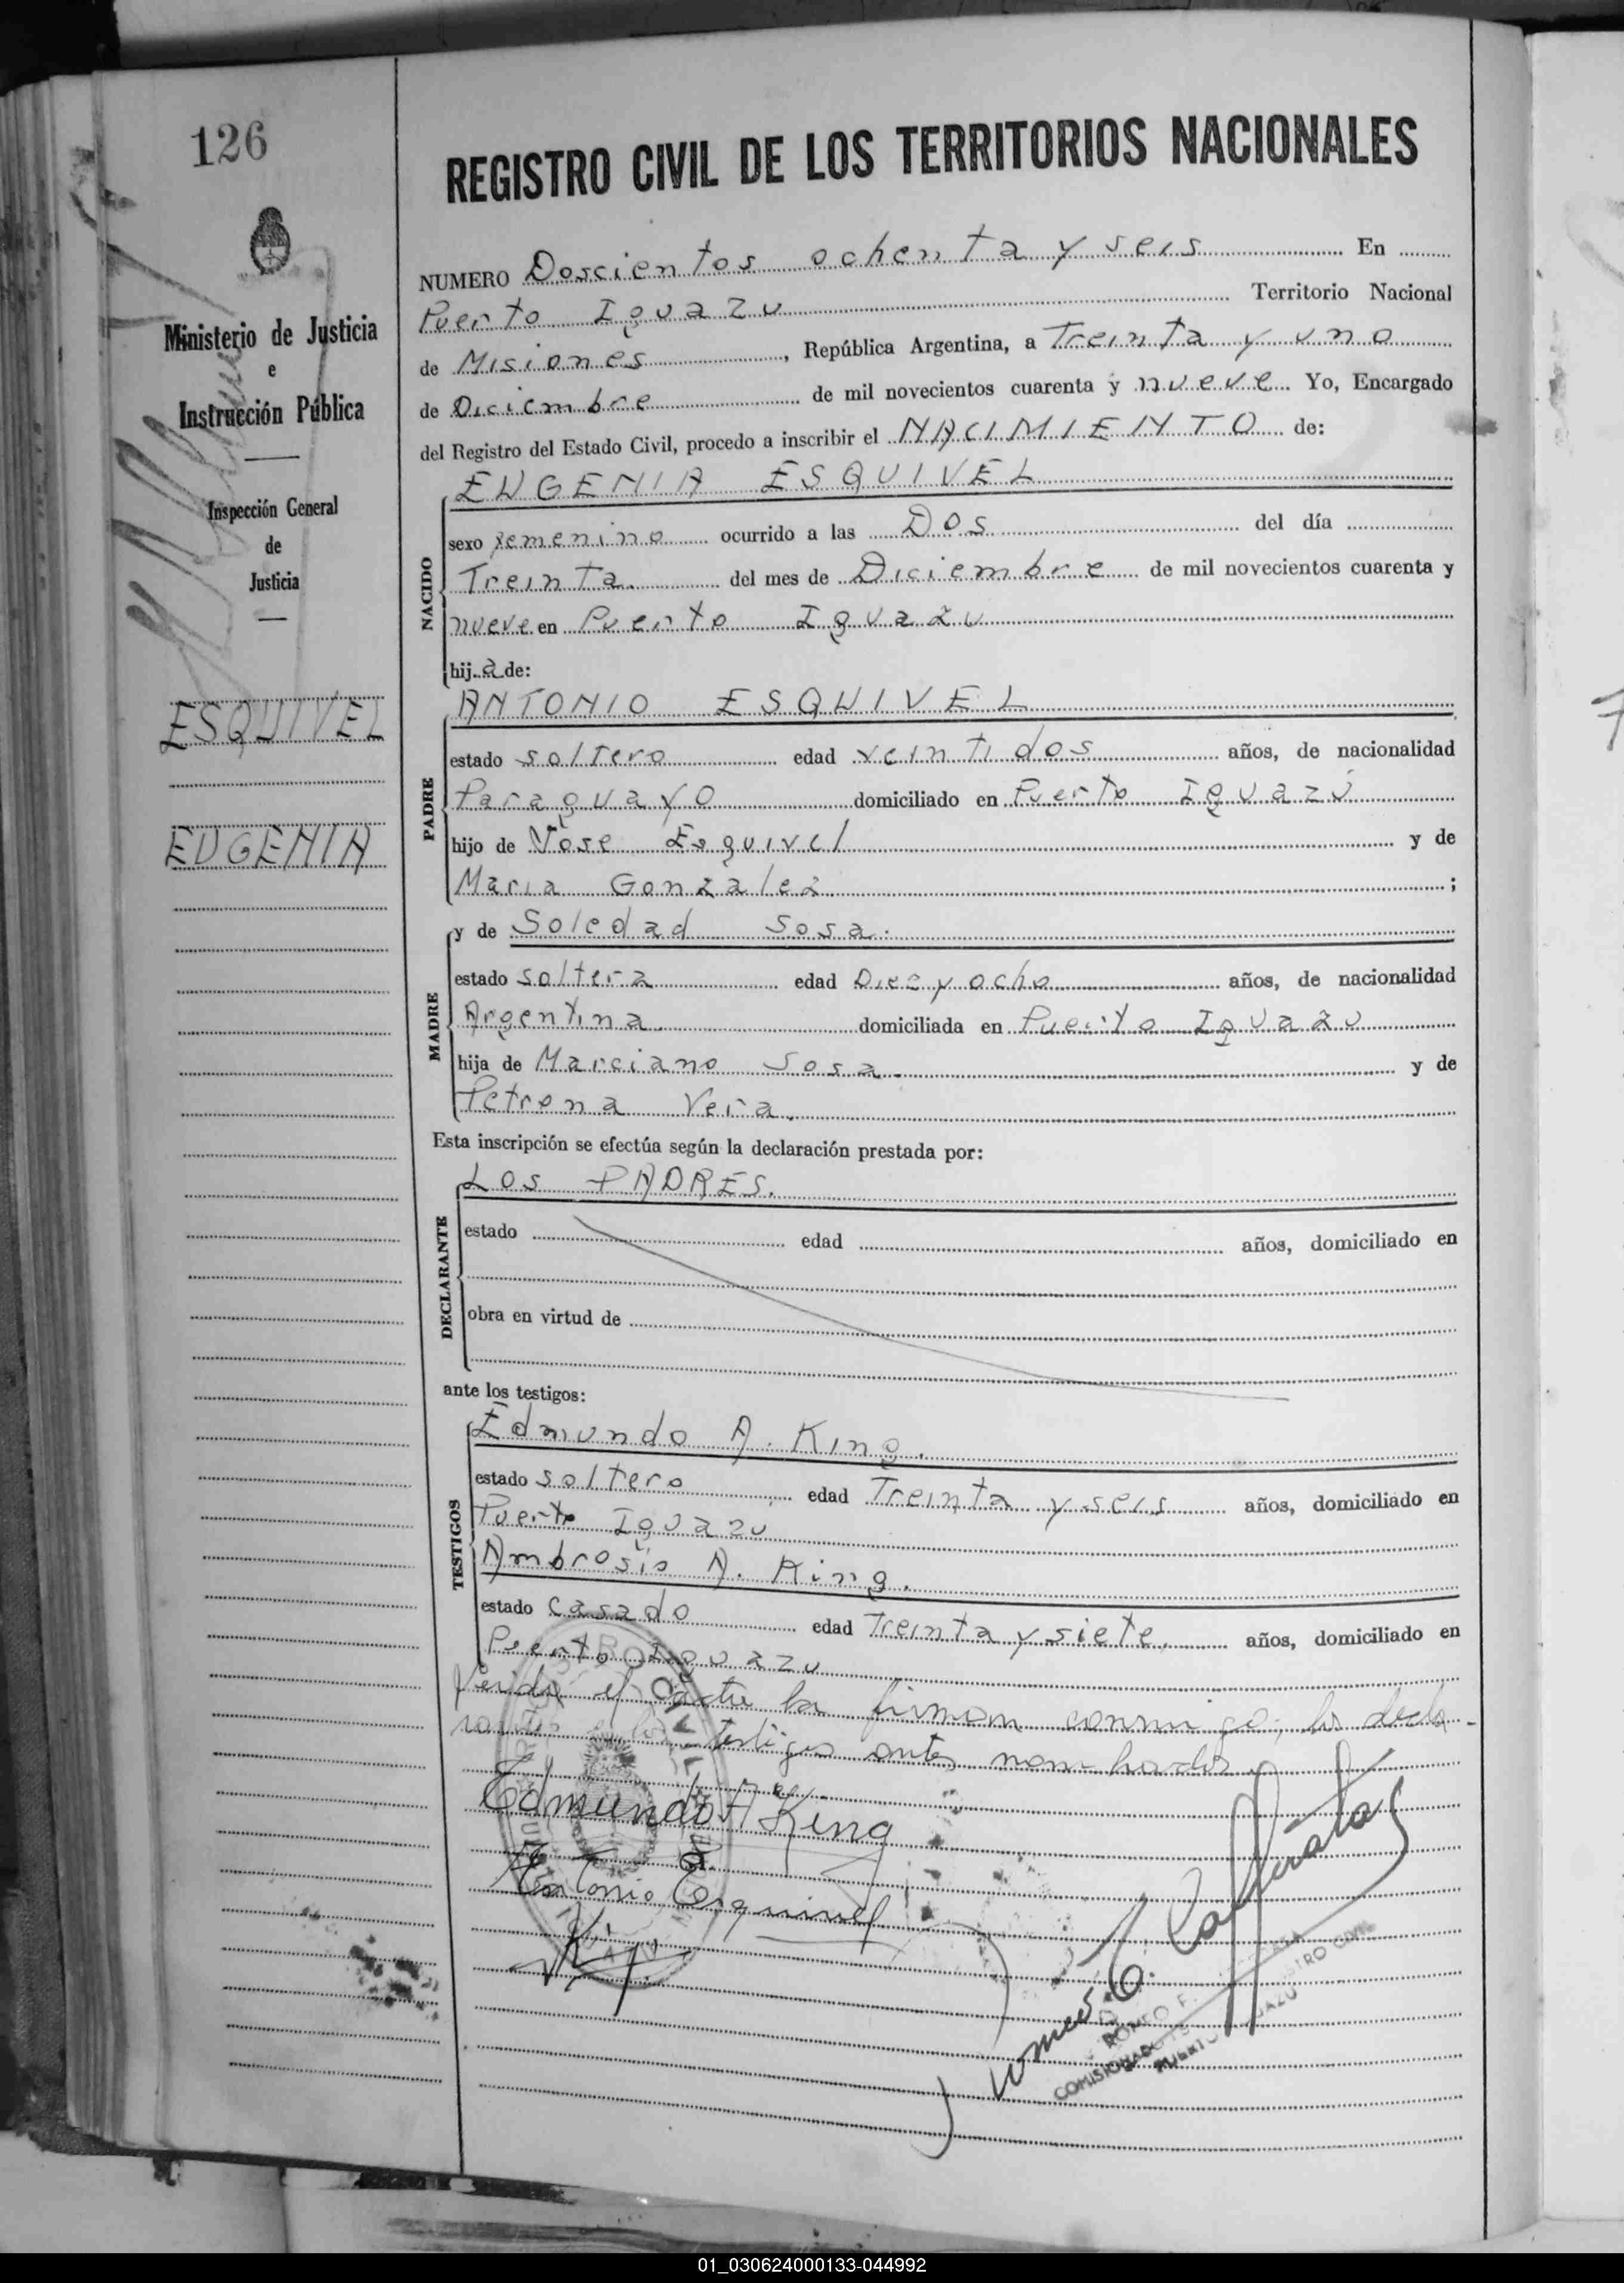 126
REGISTRO CIVIL DE LOS TERRITORIOS NACIONALES
Ministerio de Justicia
e
Instrucción Pública
Inspección General
de
Justicia
ESQUIVEL
EUGENIA
NUMERO Doscientos ochenta y seis En
Puerto Iguazu Territorio Nacional
de Misiones, República Argentina, a Treinta y uno
de Diciembre de mil novecientos cuarenta y nueve Yo, Encargado
del Registro del Estado Civil, procedo a inscribir el NACIMIENTO de:
NACIDO
EUGENIA ESQUIVEL
sexo femenino ocurrido a las Dos del día
Treinta del mes de Diciembre de mil novecientos cuarenta y
nueve en Puerto Iguazu
hija de:
PADRE
ANTONIO ESQUIVEL
estado soltero edad veintidos años, de nacionalidad
Paraguayo domiciliado en Puerto Iguazú
hijo de Jose Esquivel y de
Maria Gonzalez ;
MADRE
y de Soledad Sosa.
estado soltera edad Diez y ocho años, de nacionalidad
Argentina domiciliada en Puerto Iguazu
hija de Marciano Sosa. y de
Petrona Vera.
Esta inscripción se efectúa según la declaración prestada por:
DECLARANTE
LOS PADRES.
estado edad años, domiciliado en
obra en virtud de
ante los testigos:
TESTIGOS
Edmundo A. King.
estado soltero edad Treinta y seis años, domiciliado en
Puerto Iguazu
Ambrosio A. King.
estado casado edad Treinta y siete. años, domiciliado en
Puerto Iguazu
Leida el acta la firman conmigo, los decla-
rantes y los testigos antes nombrados
Edmundo A King
Antonio Esquivel
ROMEO F.
COMISIONADO
PUERTO IGUAZU
REGISTRO CIVIL
01_030624000133-044992